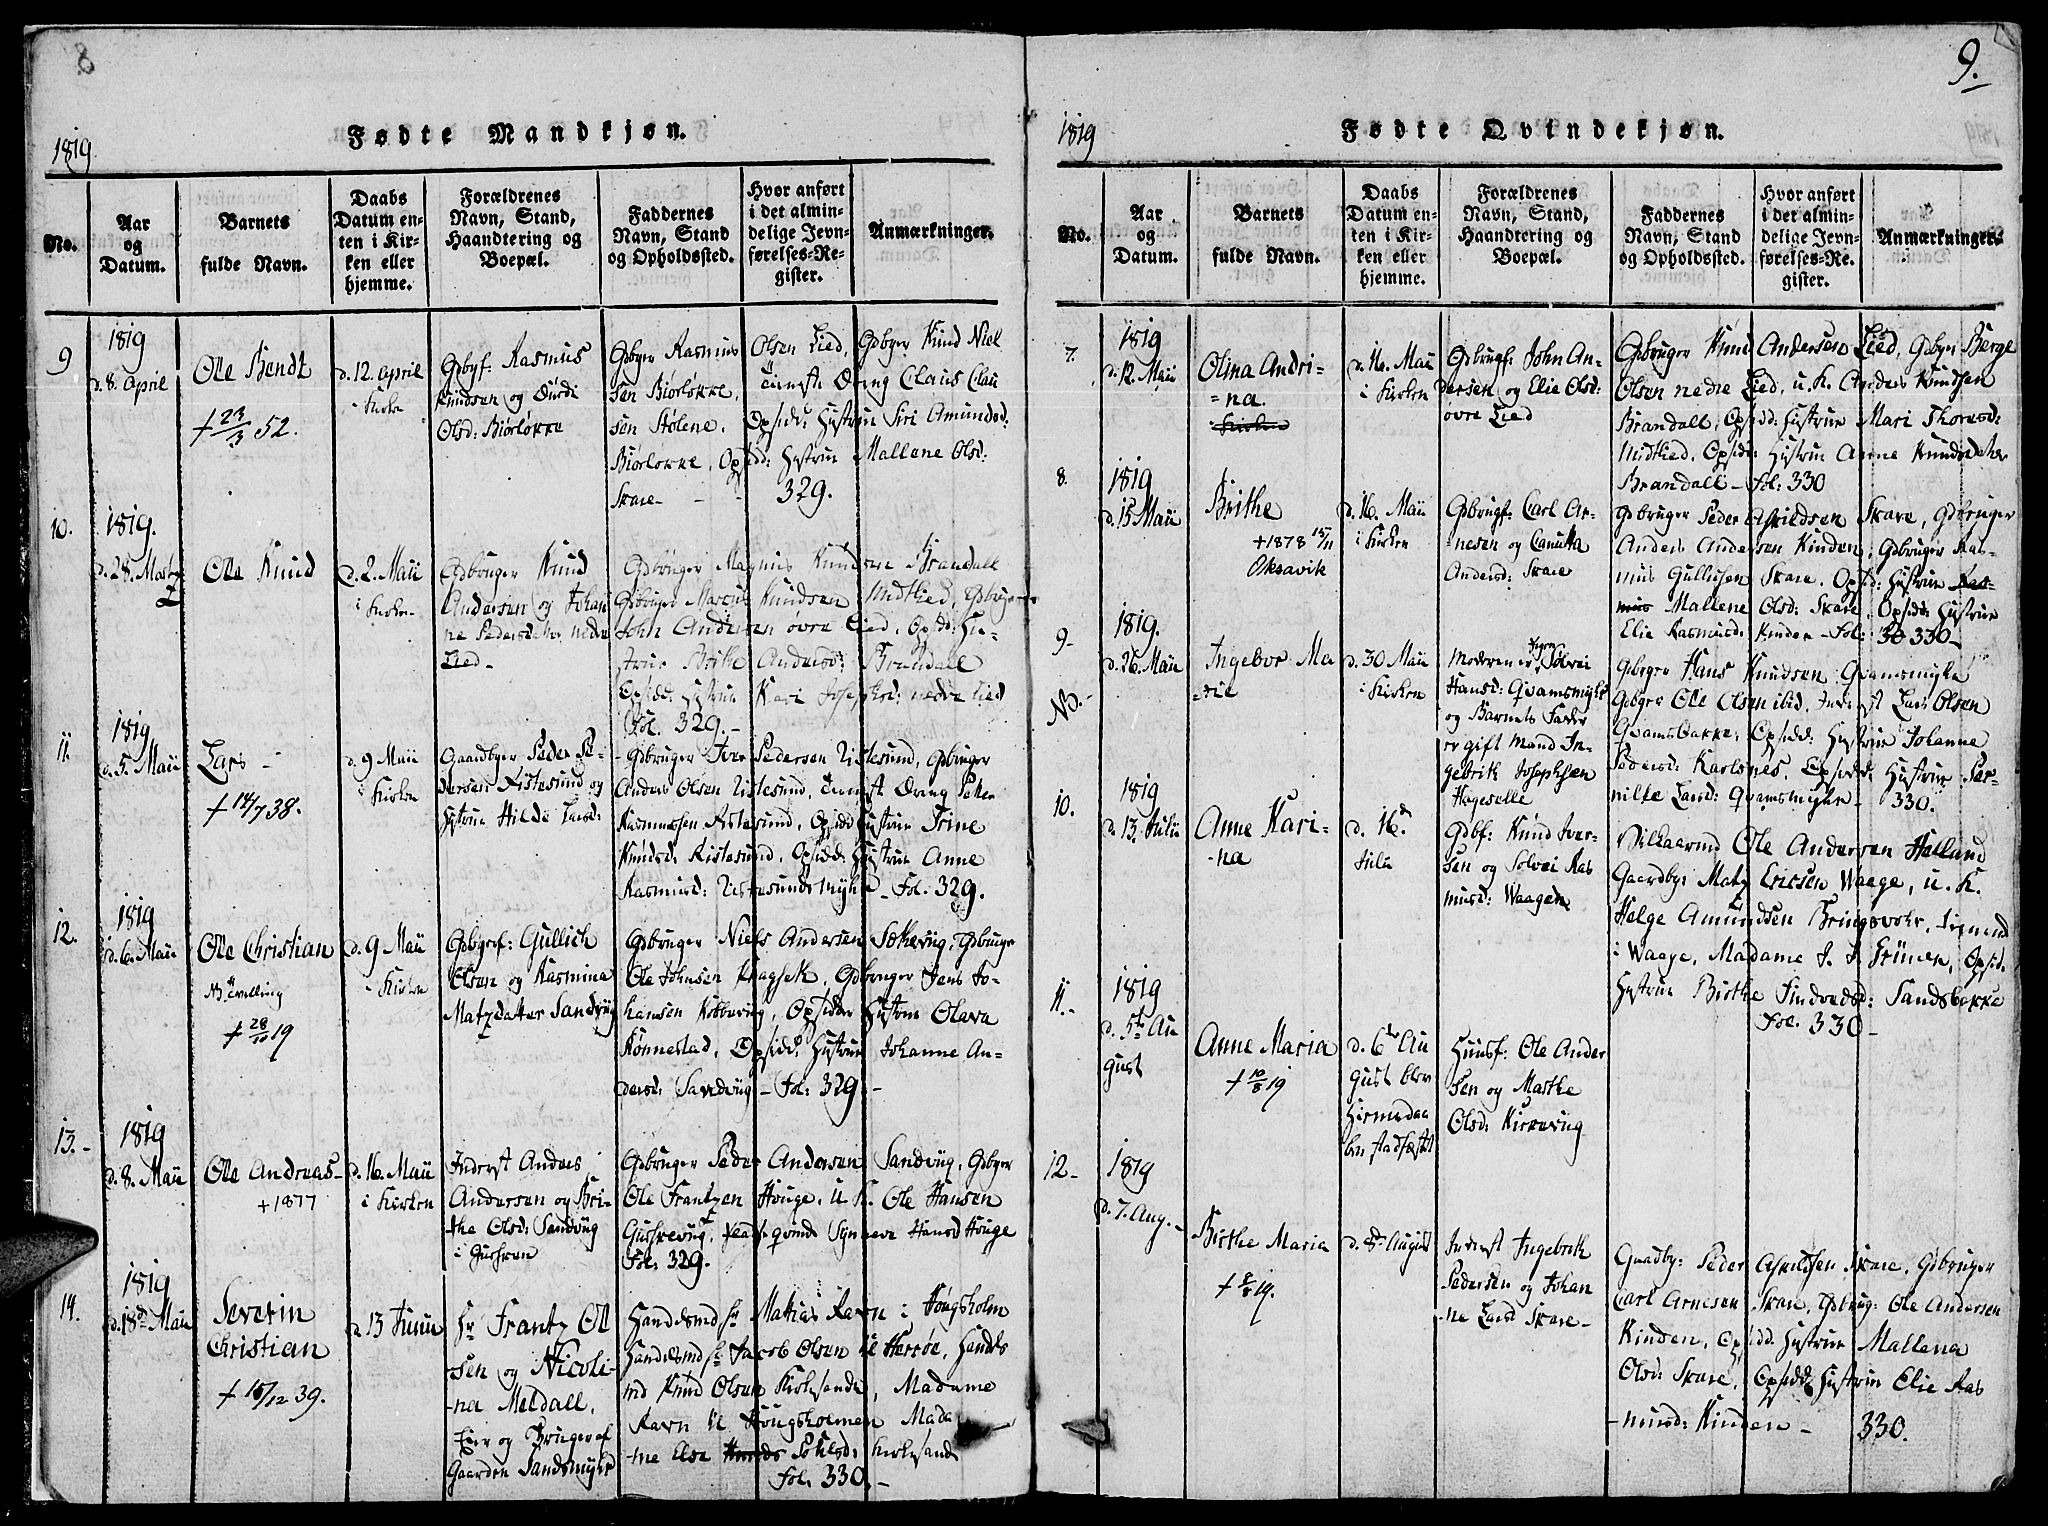 8
1819
Fødte Mandkjøn.
No.
Aar
og
Datum.
Barnets
fulde Navn.
Daabs
Datum en-
ten i Kir-
ken eller
hjemme.
Forældrenes
Navn, Stand,
Haandtering og
Boepæl.
Faddernes
Navn, Stand
og Opholdssted.
Hvor anført
i det almin-
delige Jevn-
førelses-Re-
gister.
Anmærkninger.
9
1819
d. 8. April
Ole Bendt
+ 23/3 52.
d. 12. April
i Kirken
Gdbrf. Rasmus
Knudsen og Durdi
Olsd: Biørløkke
Gdbger Rasmus Olsen Lied, Gdbger Knud Niel
sen Biørløkke, Claus Clau
sen Stølene, Opsidd: Hustrue Siri Amundsd:
Biørløkke, Opsidd: Hustrue Mallene Olsd:
Skare - - 329.
10.
1819.
Ole Knud
d. 2. Maii
i Kirken
Gdbruger Knud
Andersen og Johan
ne Pedersdatter nedre
Lied -
Gdbruger Magnus Knudsen Brandall
Gdbruger Marcus Knudsen Midtlied, Gdbruger
John Andersen øvre Lied, Opsidd: Hu-
strue Birthe Andersd: Brandall
Opsidd: Hustrue Kari Josephsd: nedre Lied
Fol. 329. -
11.
1819
d. 5. Maii
Lars -
+ 14/7 38.
d. 9 Maii
i Kirken
Gaardbger Peder Pe-
dersen Ristesund og
Hustrue Hilde Larsd:
Gdbruger Iver Pedersen Ristesund, Gdbruger
Anders Olsen Ristesund, Dreng Peter
Rasmussen Ristesund, Opsidd: Hustrue Trine
Knudsd: Ristesund, Opsidd: Hustrue Anne
Rasmusd: Ristesundsmyhr - Fol. 329.
12.
1819
d. 6. Maii
Ole Christian
NB. Tvilling
+ 28/10 19
d. 9 Maii
i Kirken
Gdbrgf: Gullich
Olsen og Rasmina
Matzdatter Sandvüg
Gdbruger Niels Andersen Gdbruger
Ole Johnsen Gdbruger Jens Jo-
hansen Kobbevüg, Opsidder Hustrue Olava
Rønnestad, Opsidd: Hustrue Johanne An-
dersd: Sandvüg - Fol: 329 -
13. -
1819
d. 8. Maii
Ole Andreas
+1877
d. 16. Maii
i Kirken
Inderst Anders
Andersen og Bri-
the Olsd: Sandvüg
Gdbruger Peder Andersen Sandvüg, Gdbger
Ole Frantzen Houge, u. K. Ole Hansen
qvinde Synneve Hansd Houge
Fol: 329.
14.
1819
d. 18de Maii
Severin
Christian
+ 15/12 39.
d. 13 Junii
Hr Frantz Ol
sen og Nicoli-
na Meldall,
Eier og Bruger af
Gaarden Sandsmyhr
Handelsmd Hr Mathias Ravn i Hougsholm
Handelsmd Hr Jacob Olsen til Herrøe, Handels
md Knud Olsen Kirkesande, Madame
Ravn til Hougsholmen Mada
me Else Kirkesand
Fol. 330. -
9.
1819
Fødte Qvindekjøn.
No.
Aar
og
Datum.
Barnets
fulde Navn.
Daabs
Datum en-
ten i Kir-
ken eller
hjemme.
Forældrenes
Navn, Stand,
Haandtering og
Boepæl.
Faddernes
Navn, Stand
og Opholdssted.
Hvor anført
i det almin-
delige Jevn-
førelses-Re-
gister.
Anmærkninger.
7.
1819
d. 12. Maii
Olina Andri-
na.
d. 16. Maii
i Kirken
Gdbrugf: John An-
dersen og Elie Olsd:
øvre Lied
Gdbruger Knud Andersen Lied, Gdbger Berge
Olsen nedre Lied, u. K. Anders Knudsen
Brandall, Opsidd: Hustrue Mari Thoresd:
Midtlied, Opsidd: Hustrue Anne Knudsdatter
Brandall - Fol: 330
8.
1819
d. 15 Maii
Brithe
+1878 15/11
Oksavik
d. 16. Maii
i Kirken
Gdbrugf: Carl Ar-
nesen og Canutta
Andersd: Skare
Gdbruger Peder Askildsen Skare, Gdbruger
Anders Andersen Kinden, Gdbruger Ras-
mus Gullichsen Skare, Opsid: Hustrue
Mallene Olsd: Skare, Opsidd: Hustrue
Elie Rasmusd: Kinden - Fol: 330 -
9 -
NB. -
1819.
d. 26. Maii
Ingebor Ma
rie
d. 30 Maii
i Kirken
Moderen er Pigen Solvei
Hansd: Qvamsmyhr
og Barnets Fader
er gift Mand In-
gebrik Josephsen
Gdbger Hans Knudsen Qvamsmyhr
Gdbger Ole Olsen ibid, Inderst Lars Olsen
Qvamsbakke, Opsidd: Hustrue Johanne
Pedersd: Karlsnes, Opsidd: Hustrue Per-
nille Larsd: Qvamsmyhr - 330.
10.
1819
d. 13. Julii
Anne Kari-
na
d. 16d
Julii
Gdbf: Knud Iver-
sen og Solvei Ras
musd: Waagen
Ole Andersen Hatland
Gaardbr: Matz Ericsen Waage, u. K.
Helge Amundsen Bringsvohr,
i Waage, Madame Opsid.
Hustrue Birthe Sandsbakke
Fol. 330 -
11. -
1819
d. 5te Au
gust
Anne Maria
+ 10/8 19
d. 6te Au
gust blev
hiemmedaa
ben stadfæstet
Huusf: Ole Ander
sen og Marthe
Olsd: Kirkevüg
12 -
1819
d. 7. Aug. -
Birthe Maria
d. 8de August
Inderst Ingebrik
Pedersen og Johan
ne Larsd Skare -
Gaardbr: Peder Askildsen Skare, Gdbruger
Carl Arnesen Skare, Gdbrug: Ole Andersen
Kinden, Opsidd: Hustrue Mallena
Olsd: Skare, Opsidd: Hustrue Elie Ras
musd: Kinden - 330.